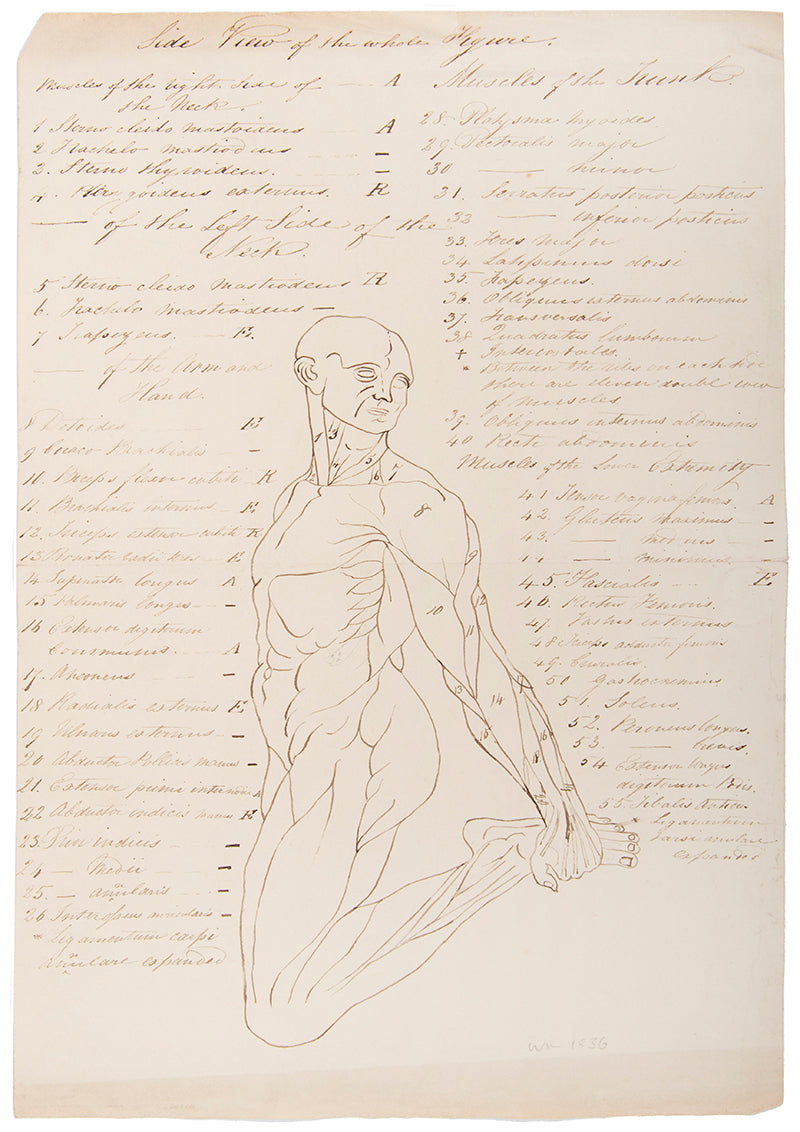 Side View of the whole Figure.
Muscles of the right Side of — A
the Neck.
1 Sterno cleido mastoideus A
2 Trachelo mastiodeus —
3. Sterno thyroideus. —
4. Pterygoideus externus. R
— of the Left Side of the
Neck.
5 Sterno cleido mastiodeus R
6. Trachelo mastiodeus —
7 Trapezeus. E.
— of the Arm and
Hand.
8 Detoides E
9 Coraco Brachialis —
10. Biceps flexor cubiti R
11. Brachialis internus — E
12. Triceps extensor cubiti R
13 Pronator radii teres — E
14 Supinator longus A
15 Palmaris longus —
16 Extensor digitorum
Communis. — A
17. Anconeus —
18 Radialis externus E
19 Ulnaris externus —
20 Abductor Pollicis manus —
21. Extensor primi internodii A
22 Abductor indicis manus E
23. Prior indicis —
24 — Medii —
25. — annularis —
26 Interosseus auricularis —
* Ligamentum carpi
annulare expanded
Muscles of the Trunk.
28. Platysma myoides.
29. Pectoralis major
30 — minor
31. Serratus posterior posticus
32 — inferior posticus
33. Teres major
34. Latissimus dorsi
35. Trapezeus.
36. Obliquus externus abdominis
37. Transversalis
38 Quadratus lumborum
+ Intercostales.
* Between the ribs on each side
there are eleven double rows
of Muscles
39. Obliquus internus abdominis
40 Recti abdominis
Muscles of the Lower Extremity
41 Tensor vagina femoris. A
42. Gluteus maximus —
43. — medius —
44 — minimus —
45. Fascialis E
46. Rectus Femoris.
47. Vastus internus
48 Triceps adductor femoris
49. Cruralis.
50 Gastrocnemius
51. Soleus.
52. Peroneus longus.
53. — brevis.
54 Extensor longus
digitorum Pedis.
55. Tibialis Anticus.
* Ligamentum
tarsi annulare
expanded
1
3
2
4
5
6
7
8
9
10
11
12
13
14
15
16
17
18
wn 1836